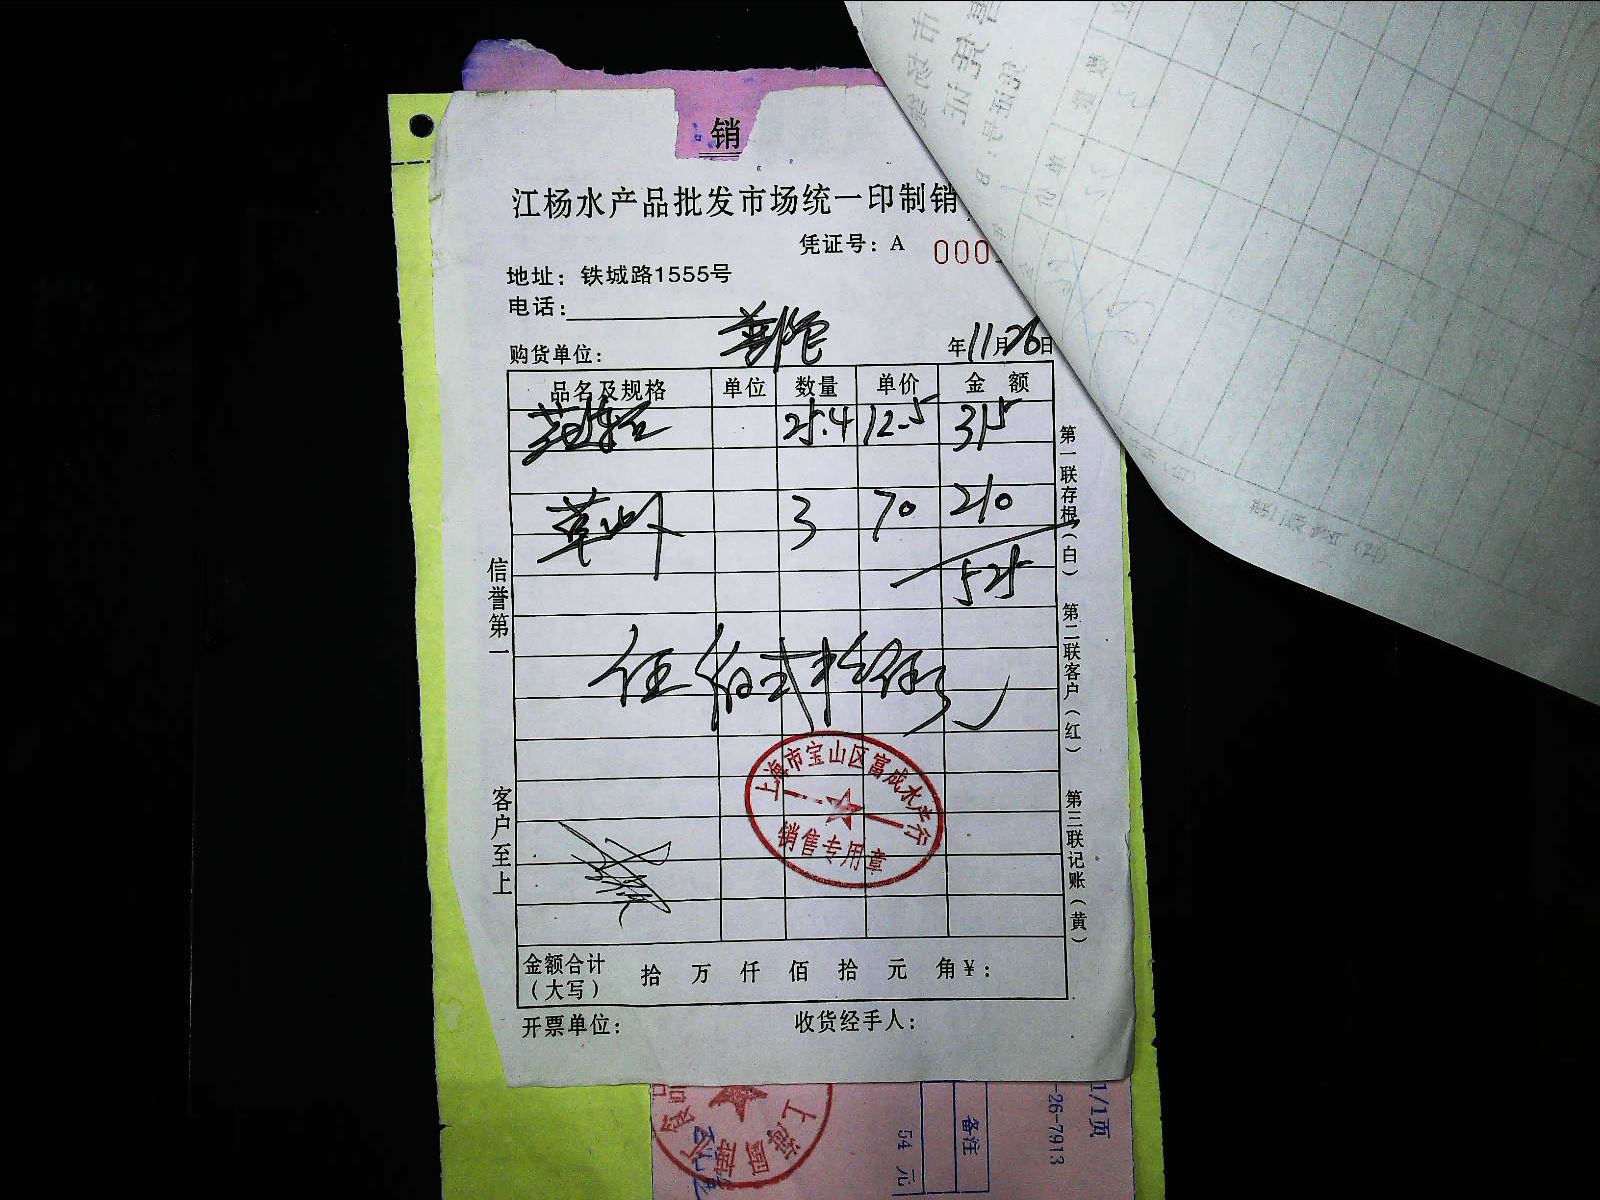 销
江杨水产品批发市场统一印制销
凭证号：A 000
地址：铁城路1555号
电话：
购货单位： 普陀 年11月26日
品名及规格 单位 数量 单价 金 额
25.4 12.5 315
草虾 3 70 210
525
伍佰式拾伍元
上海市宝山区富成水产行
销售专用章
金额合计（大写） 拾 万 仟 佰 拾 元 角￥：
开票单位： 收货经手人：
信誉第一
客户至上
第一联存根（白）
第二联客户（红）
第三联记账（黄）
1/1页
-26-7913
备注
54 元
上海